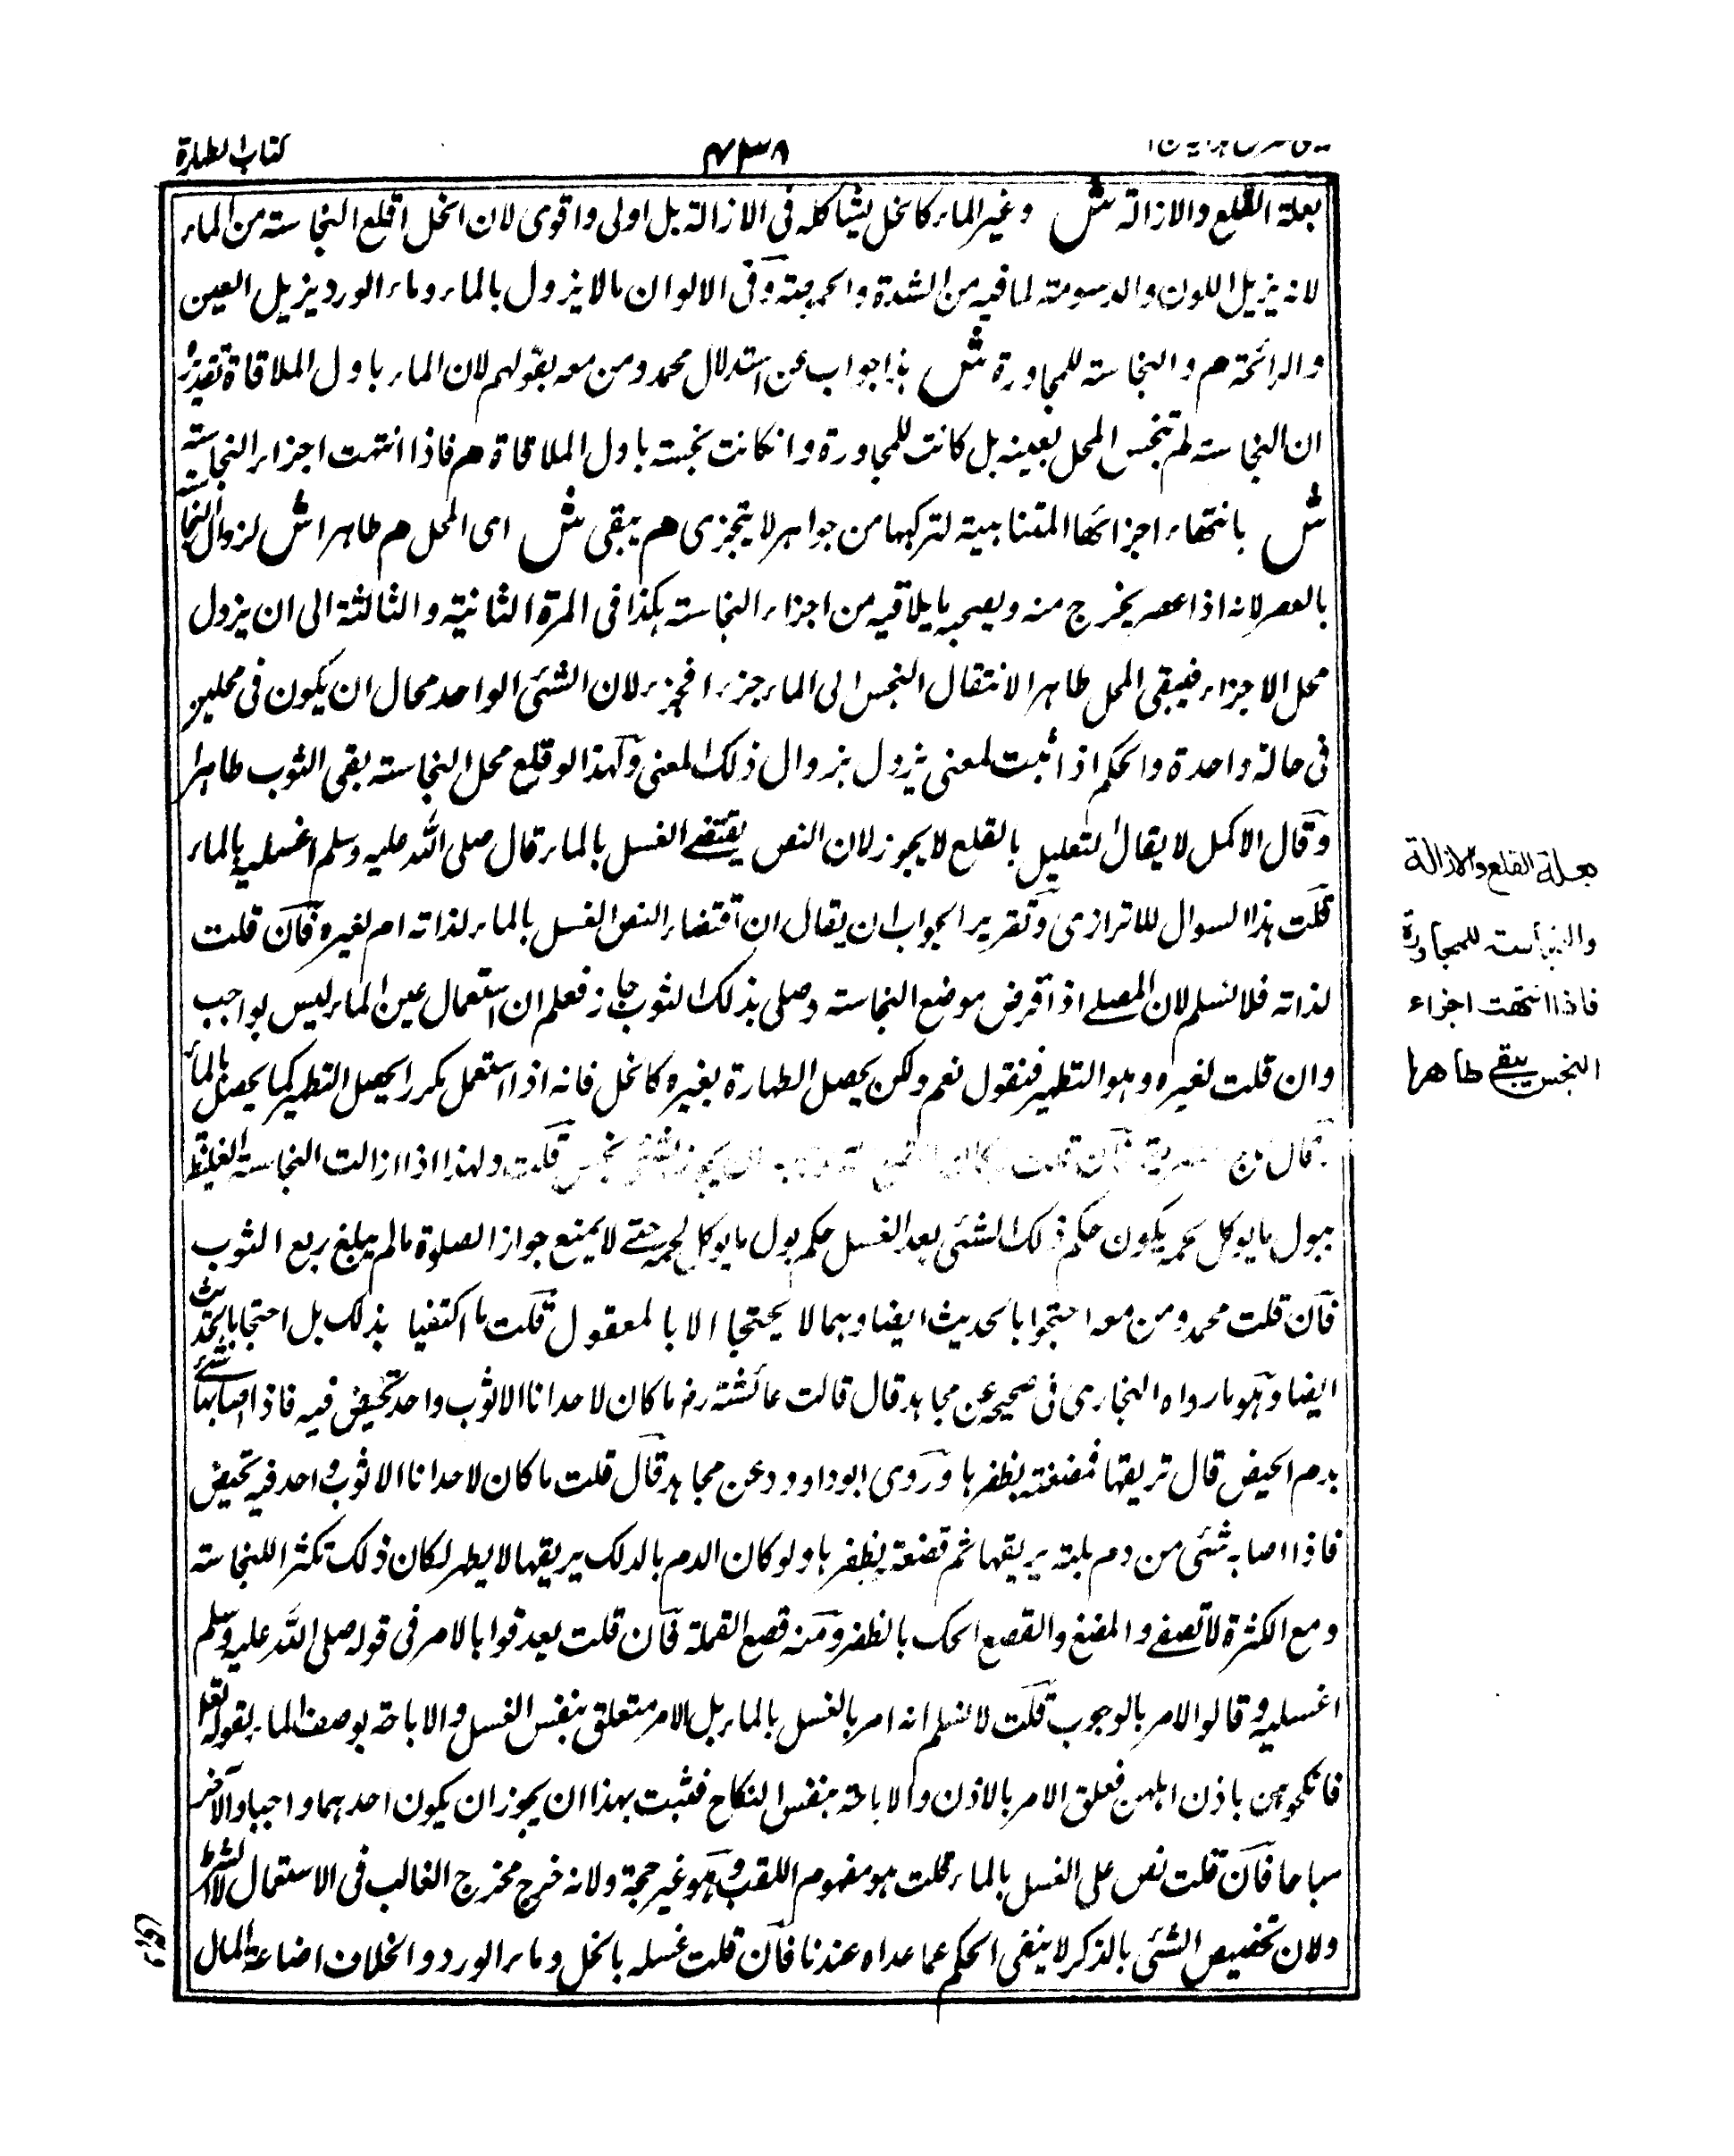 كتاب الطهارة
٧٣٨
بعلة القلع والازالة ش وغير الماء كالخل يشاكله فى الازالة بل اولى واقوى لان الخل اقلع النجاسة من الماء
لانه يزيل اللون والدسومة لما فيه من الشدة والحموضة وفى الالوان مالا يزول بالماء وماء الورد يزيل العين
والرائحة م والنجاسة للمجاورة ش هذا جواب عن استدلال محمد ومن معه بقولهم لان الماء باول الملاقاة تقديره
ان النجاسة لم تنجس المحل بعينه بل كانت للمجاورة وانكانت نجسة باول الملاقاة م فاذا انتهت اجزاء النجاسة
ش بانتهاء اجزائها المتناهية لتركبها من جواهر لا يتجزى م يبقى ش اى المحل م طاهرا ش لزوال النجاسة
بالعصر لانه اذا عصر يخرج منه ويصحبه ما يلاقيه من اجزاء النجاسة هكذا فى المرة الثانية والثالثة الى ان يزول
محل الاجزاء فيبقى المحل طاهرا لانتقال النجس الى الماء جزءا فجزء لان الشئ الواحد محال ان يكون فى محلين
فى حالة واحدة والحكم اذا ثبت لمعنى يزول بزوال ذلك المعنى ولهذا لو قلع محل النجاسة بقى الثوب طاهرا
وقال الاكمل لا يقال التعليل بالقلع لا يجوز لان النص يقتضے الغسل بالماء قال صلى الله عليه وسلم اغسليه بالماء
قلت هذا السوال للاترازى وتقرير الجواب ان يقال ان اقتضاء النص الغسل بالماء لذاته ام لغيره فان قلت
لذاته فلا نسلم لان المصلے اذا قرض موضع النجاسة وصلى بذلك الثوب جاز فعلم ان استعمال عين الماء ليس بواجب
وان قلت لغيره وهو التطهير فنقول نعم ولكن يحصل الطهارة بغيره كالخل فانه اذا استعمل مكررا يحصل التطهير كما يحصل بالماء
قال فان قلت قلت ولهذا اذا ازالت النجاسة الغليظة
ببول ما يوكل لحمه يكون حكم ذلك الشئى بعد الغسل حكم بول ما يوكل لحمه حتے لا يمنع جواز الصلوة مالم يبلغ ربع الثوب
فان قلت محمد ومن معه احتجوا بالحديث ايضا وهما لا يحتجا الا بالمعقول قلت ما اكتفيا بذلك بل احتجا بالحديث
ايضا وهو مارواه البخارى فى صحيحه عن مجاهد قال قالت عائشة رض ما كان لاحدانا الا ثوب واحد تحيض فيه فاذا اصابها شئے
بدم الحيض قال تريقها فمضغته بظفرها وروى ابو داود عن مجاهد قال قلت ما كان لاحدانا الا ثوب واحد فيه تحيض
فاذا اصابه شئى من دم بلته بريقها ثم قصعة بظفرها ولو كان الدم بالدلك بريقها لا يطهر لكان ذلك تكثرا للنجاسة
ومع الكثرة لا تصفے والمضغ والقصع الحك بالظفر ومنه قصع القملة فان قلت بعد قوا بالامر فى قوله صلى الله عليه وسلم
اغسليه وقالوا الامر بالوجوب قلت لا نسلم انه امر بالغسل بالماء بل الامر متعلق بنفس الغسل والاباحة بوصف الماء بقوله تعالى
فانكحوهن باذن اهلهن فعلق الامر بالاذن والاباحة بنفس النكاح فثبت بهذا ان يجوز ان يكون احدهما واجبا والآخر
مباحا فان قلت نص على الغسل بالماء قلت هو مفهوم اللقب وهو غير حجة ولانه خرج مخرج الغالب فى الاستعمال لا الشرط
ولان تخصيص الشئى بالذكر لا ينفى الحكم عما عداه عندنا فان قلت غسله بالخل وماء الورد والخلاف اضاعة المال
بعلة القلع والازالة
والنجاسة للمجاورة
فاذا انتهت اجزاء
النجس يبقے طاهرا